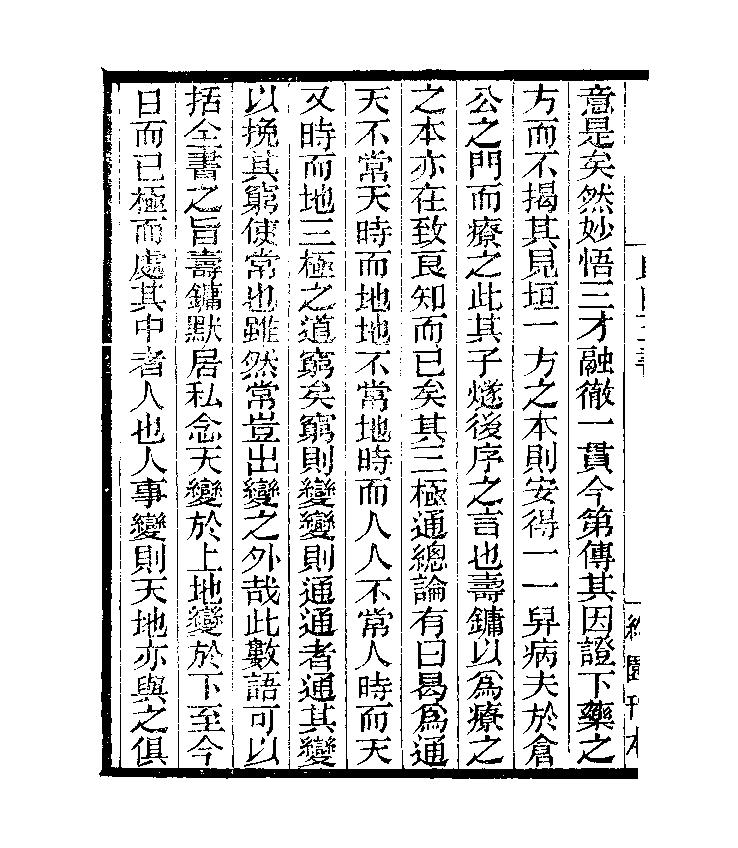 意是矣然妙悟三才融徹一貫今第傳其因證下藥之
方而不揭其見垣一方之本則安得一一舁病夫於倉
公之門而療之此其子燧後序之言也壽鏞以為療之
之本亦在致良知而已矣其三極通總論有曰曷為通
天不常天時而地地不常地時而人人不常人時而天
又時而地三極之道窮矣窮則變變則通通者通其變
以挽其窮使常也雖然常豈出變之外哉此數語可以
括全書之旨壽鏞默居私念天變於上地變於下至今
日而已極而處其中者人也人事變則天地亦與之俱